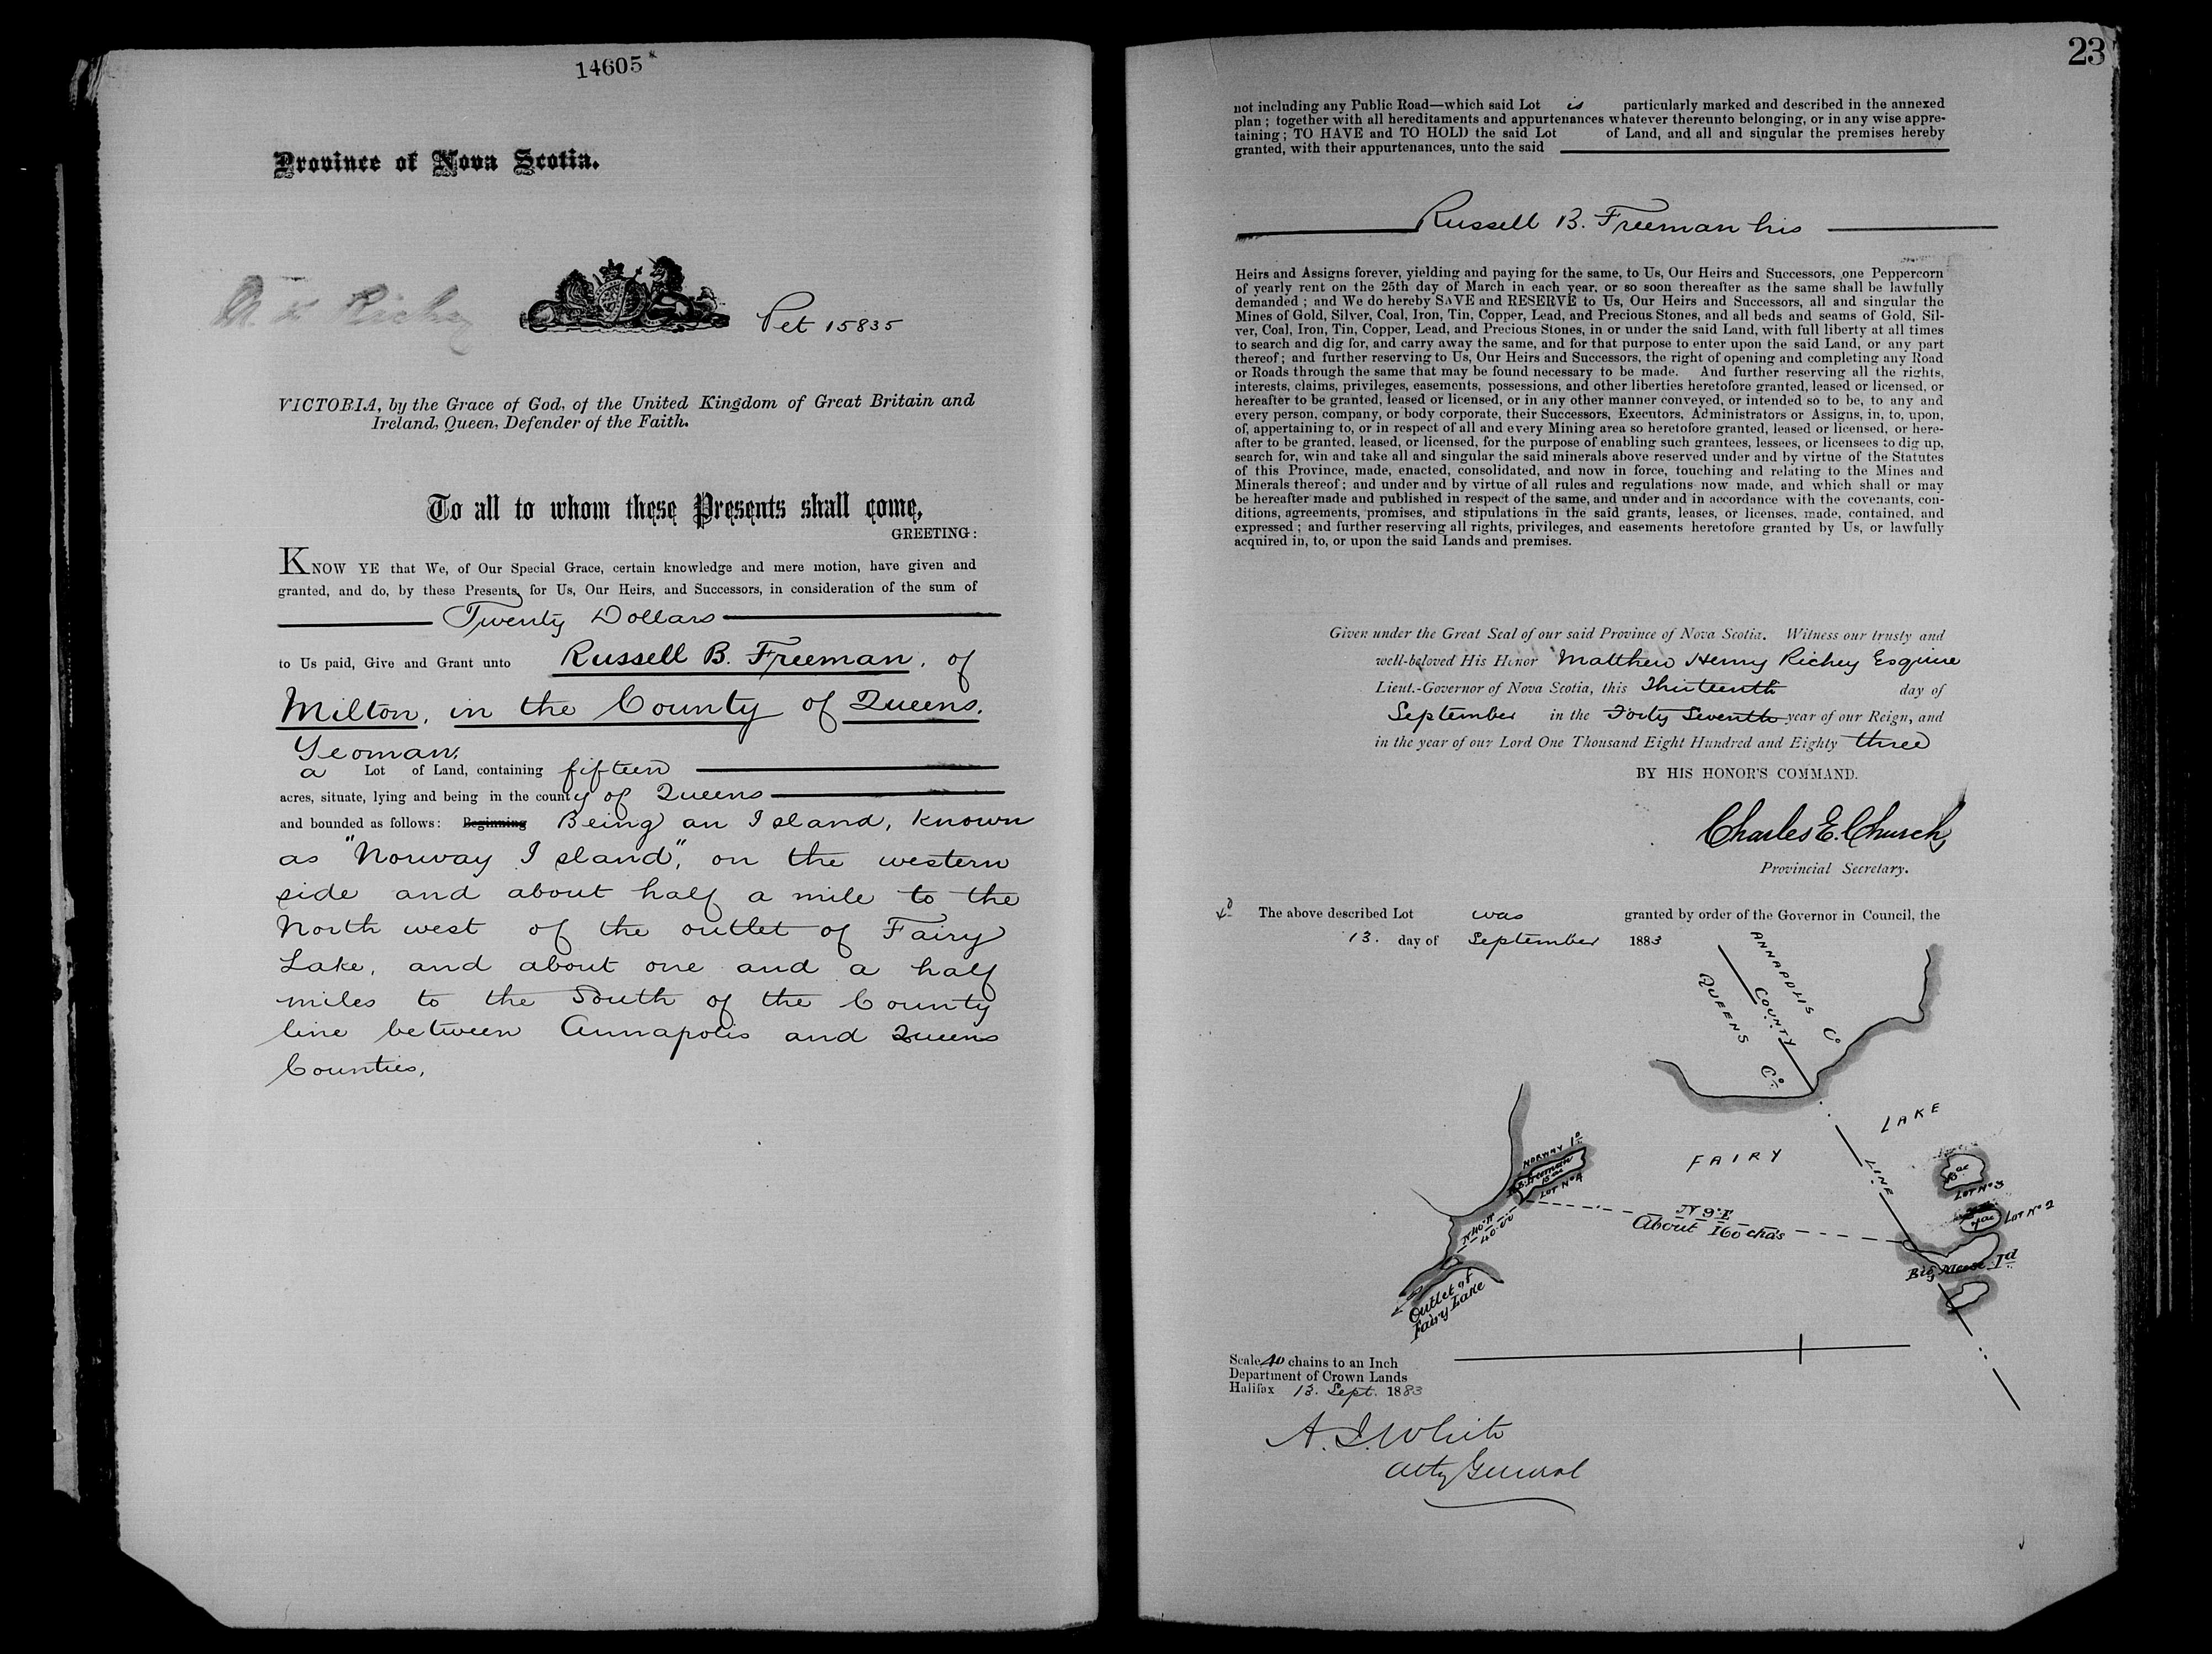 14605
Province of Nova Scotia.
Pet 15835
VICTORIA, by the Grace of God, of the United Kingdom of Great Britain and
Ireland, Queen, Defender of the Faith.
To all to whom these Presents shall come,
GREETING:
KNOW YE that We, of Our Special Grace, certain knowledge and mere motion, have given and
granted, and do, by these Presents, for Us, Our Heirs, and Successors, in consideration of the sum of
Twenty Dollars
to Us paid, Give and Grant unto Russell B. Freeman, of
Milton, in the County of Queens.
Yeoman,
a Lot of Land, containing fifteen
acres, situate, lying and being in the county of Queens
and bounded as follows: Beginning Being an Island, known
as "Norway Island", on the western
side and about half a mile to the
North west of the outlet of Fairy
Lake, and about one and a half
miles to the South of the County
line between Annapolis and Queens
Counties,
23
not including any Public Road—which said Lot is particularly marked and described in the annexed
plan; together with all hereditaments and appurtenances whatever thereunto belonging, or in any wise appre-
taining; TO HAVE and TO HOLD the said Lot of Land, and all and singular the premises hereby
granted, with their appurtenances, unto the said
Russell B. Freeman his
Heirs and Assigns forever, yielding and paying for the same, to Us, Our Heirs and Successors, one Peppercorn
of yearly rent on the 25th day of March in each year, or so soon thereafter as the same shall be lawfully
demanded; and We do hereby SAVE and RESERVE to Us, Our Heirs and Successors, all and singular the
Mines of Gold, Silver, Coal, Iron, Tin, Copper, Lead, and Precious Stones, and all beds and seams of Gold, Sil-
ver, Coal, Iron, Tin, Copper, Lead, and Precious Stones, in or under the said Land, with full liberty at all times
to search and dig for, and carry away the same, and for that purpose to enter upon the said Land, or any part
thereof; and further reserving to Us, Our Heirs and Successors, the right of opening and completing any Road
or Roads through the same that may be found necessary to be made. And further reserving all the rights,
interests, claims, privileges, easements, possessions, and other liberties heretofore granted, leased or licensed, or
hereafter to be granted, leased or licensed, or in any other manner conveyed, or intended so to be, to any and
every person, company, or body corporate, their Successors, Executors, Administrators or Assigns, in, to, upon,
of, appertaining to, or in respect of all and every Mining area so heretofore granted, leased or licensed, or here-
after to be granted, leased, or licensed, for the purpose of enabling such grantees, lessees, or licensees to dig up,
search for, win and take all and singular the said minerals above reserved under and by virtue of the Statutes
of this Province, made, enacted, consolidated, and now in force, touching and relating to the Mines and
Minerals thereof; and under and by virtue of all rules and regulations now made, and which shall or may
be hereafter made and published in respect of the same, and under and in accordance with the covenants, con-
ditions, agreements, promises, and stipulations in the said grants, leases, or licenses, made, contained, and
expressed; and further reserving all rights, privileges, and easements heretofore granted by Us, or lawfully
acquired in, to, or upon the said Lands and premises.
Given under the Great Seal of our said Province of Nova Scotia. Witness our trusty and
well-beloved His Honor Matthew Henry Richey Esquire
Lieut.-Governor of Nova Scotia, this Thirteenth day of
September in the Forty Seventh year of our Reign, and
in the year of our Lord One Thousand Eight Hundred and Eighty three
BY HIS HONOR'S COMMAND.
Charles E. Church,
Provincial Secretary.
The above described Lot was granted by order of the Governor in Council, the
13. day of September 1883
ANNAPOLIS Co
COUNTY
QUEENS Co
LINE
FAIRY LAKE
NORWAY Id
R.B. Freeman
15 ac
LOT No 4
LOT No 3
LOT No 2
About 160 chas
Big Moose Id
Outlet of
Fairy Lake
Scale 40 chains to an Inch
Department of Crown Lands
Halifax 13. Sept. 1883
A. J. White
Atty General